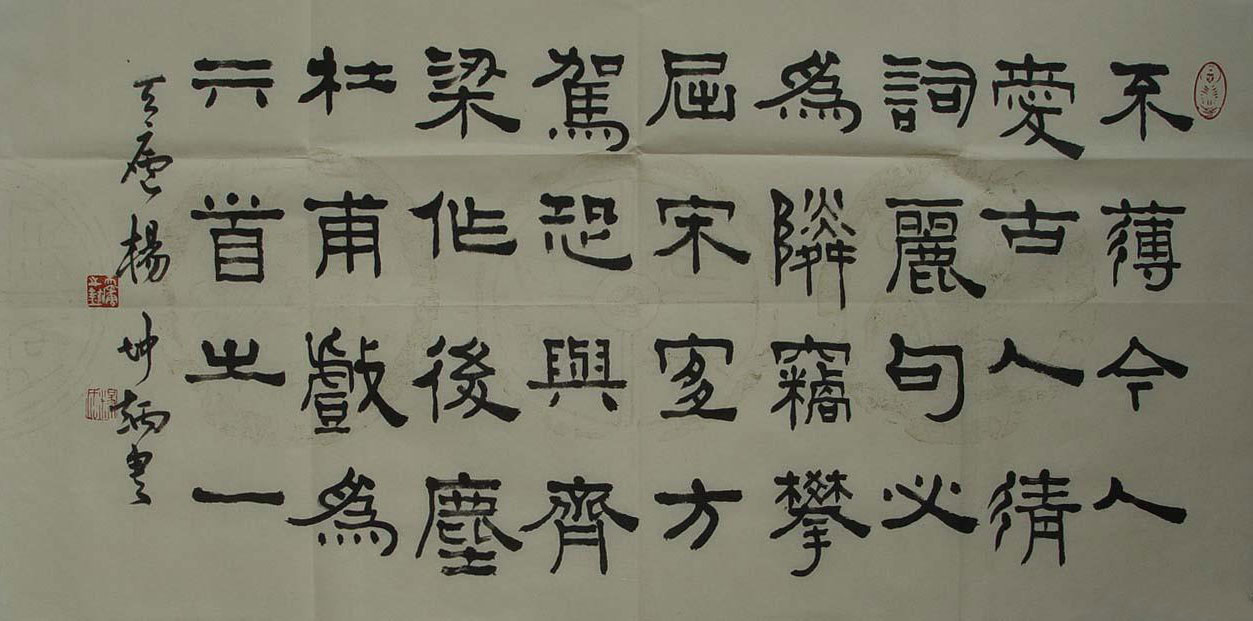 不薄今人
愛古人清
詞麗句必
為隣竊攀
屈宋宜方
駕恐與齊
梁作後塵
杜甫戲為
六首之一
楊坤炳書